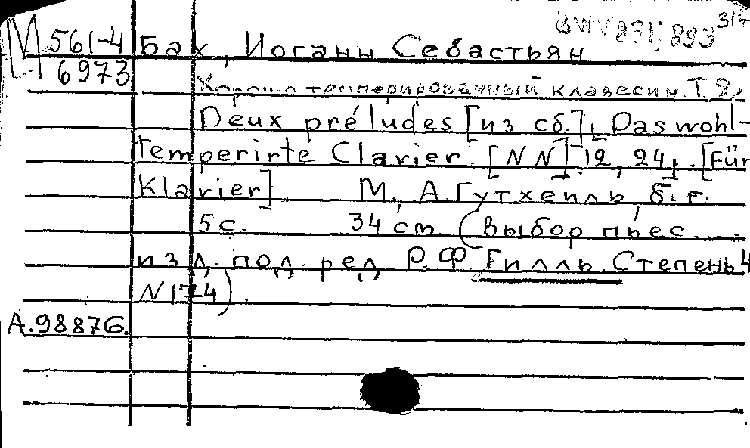 М 561-4 Бах, Иоганн Себастьян
6973
Хорошо темперированный клавесин. Т. 2.
Deux préludes [из сб.], Das wohl-
temperirte Clavier. [NN] 12, 24. [Für
Klavier] М., А. Гутхейль, б. г.
5 с. 34 см (Выбор пьес
изд. под ред. Р. Ф. Гилль. Степень 4
N 174)
А.98876.